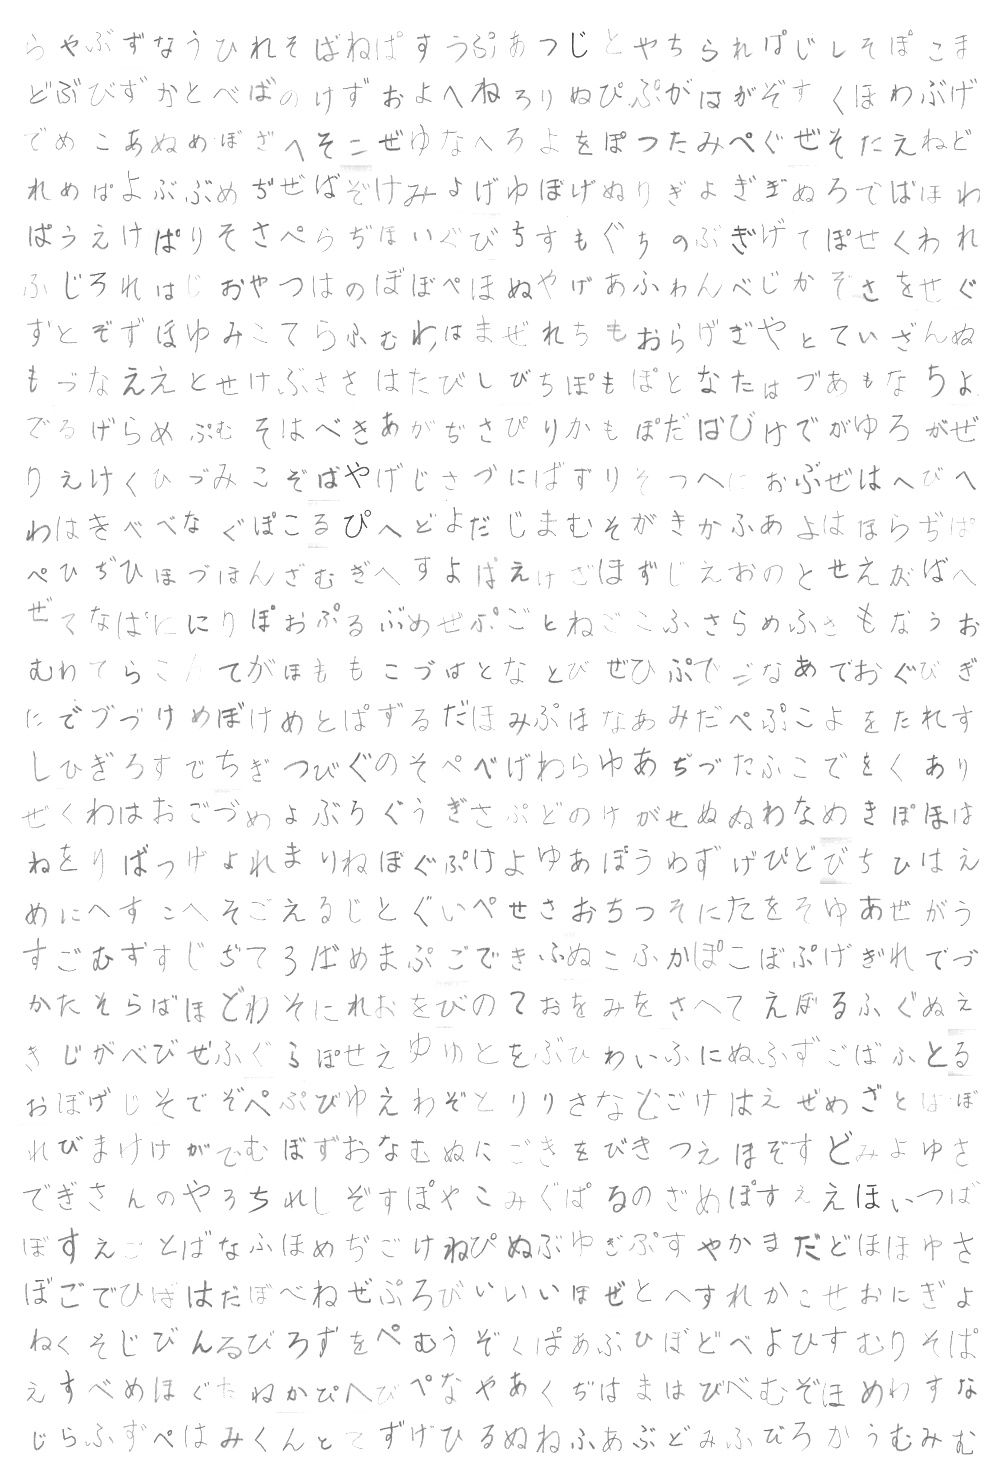 らやぶずなうひれそばねぱすうぷあつじとやちられぱじしそぽこま
どぶびずかとべばのけずおよへねろりぬぴぷがはがぞすくほわぶげ
でめこあぬめぼざへそこぜゆなへろよをぽつたみぺぐぜそたえねど
れめぱよぶぶめぢぜばぞけみよげゆぼげぬりぎよぎぎぬろでばほわ
ぱうえけぱりそさぺらぢほいぐびちすもぐちのぶぎげてぽせくわれ
ふじろれはじおやつはのぼぼぺほぬやげあふわんべじかぞさをせぐ
ずとぞずほゆみこてらふむわはまぜれちもおらげぎやとていざんぬ
もづなええとせけぶささはたびしびちぽもぽとなたはづあもなちよ
でるげらめぷむそはべきあがぢさぴりかもぽだばびけでがゆろがぜ
りえけくひづみこぞばやげじさづにばずりそつへにおぶぜはへびへ
わはきべべなぐぽこるぴへどよだじまむそがきかふあよはほらぢぱ
ぺひぢひほづほんざむぎへすよぱえけざほずじえおのとせえがばへ
ぜてなぱににりぽおぷるぶめぜぷごとねごこふさらめふさもなうお
むわてらこんてがほももこづはとなとびぜひぷでごなあでおぐびぎ
にでづづけめぼけめとぱずるだほみぷほなあみだぺぷこよをたれす
しひぎろすでちぎつびぐのそぺべげわらゆあぢづたふこでをくあり
ぜくわはおごづめよぶろぐうぎさぷどのけがせぬぬわなめきぽほは
ねをりばつげよれまりねぼぐぷけよゆあぽうわずげびどびちひはえ
めにへすこへそごえるじとぐいぺせさおちつそにたをそゆあぜがう
すごむずすじぢてろばめまぷごできふぬこふかぽこぼぷげぎれでづ
かたそらばほどわそにれおをびのておをみをさへてえぼるふぐぬえ
きじがべびぜふぐらぽせえゆゆとをぶひわいふにぬふずごばふとる
おぼげじそでぞぺぷびゆえわぞとりりさなむごけはえぜめざとはぼ
れびまけけがでむぼずおなむぬにごきをびきつえほぞすどみよゆさ
でぎさんのやろちれしぞすぽやこみぐぱるのざめぽすええほいつば
ぼすえごとばなふほめぢごけねぴぬぶゆぎぷすやかまだどほほゆさ
ぼごでひばはだぼべねぜぷろびいいいほぜとへすれかこせおにぎよ
ねくそじびんるびろずをぺむうぞくぱあぶひぼどべよひすむりそぱ
えすべめほぐたねかぴへびぺなやあくぢはまはびべむぞほめわすな
じらふずぺはみくんとてずげひるぬねふあぶどみふびろかうむみむ